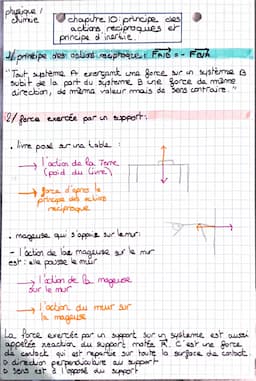 physique/
chimie
chapitre 10: principe des
actions réciproques et
principe d'inertie.
1/ principe des actions réciproques: FA/B = - FB/A
"Tout système A exerçant une force sur un système B
subit de la part du système B une force de même
direction, de même valeur mais de sens contraire."
2/ force exercée par un support:
• livre posé sur une table:
→ l'action de la Terre
(poid du livre)
→ force d'après le
principe des actions
réciproque
• mageuse qui s'appuie sur le mur:
- l'action de la mageuse sur le mur
est: elle pousse le mur
→ l'action de la mageuse
sur le mur
→ l'action du mur sur
la mageuse
La force exercée par un support sur un système est aussi
appelée réaction du support notée R. C'est une force
de contact qui est répartie sur toute la surface de contact.
direction perpendiculaire au support
sens est à l'opposé du support